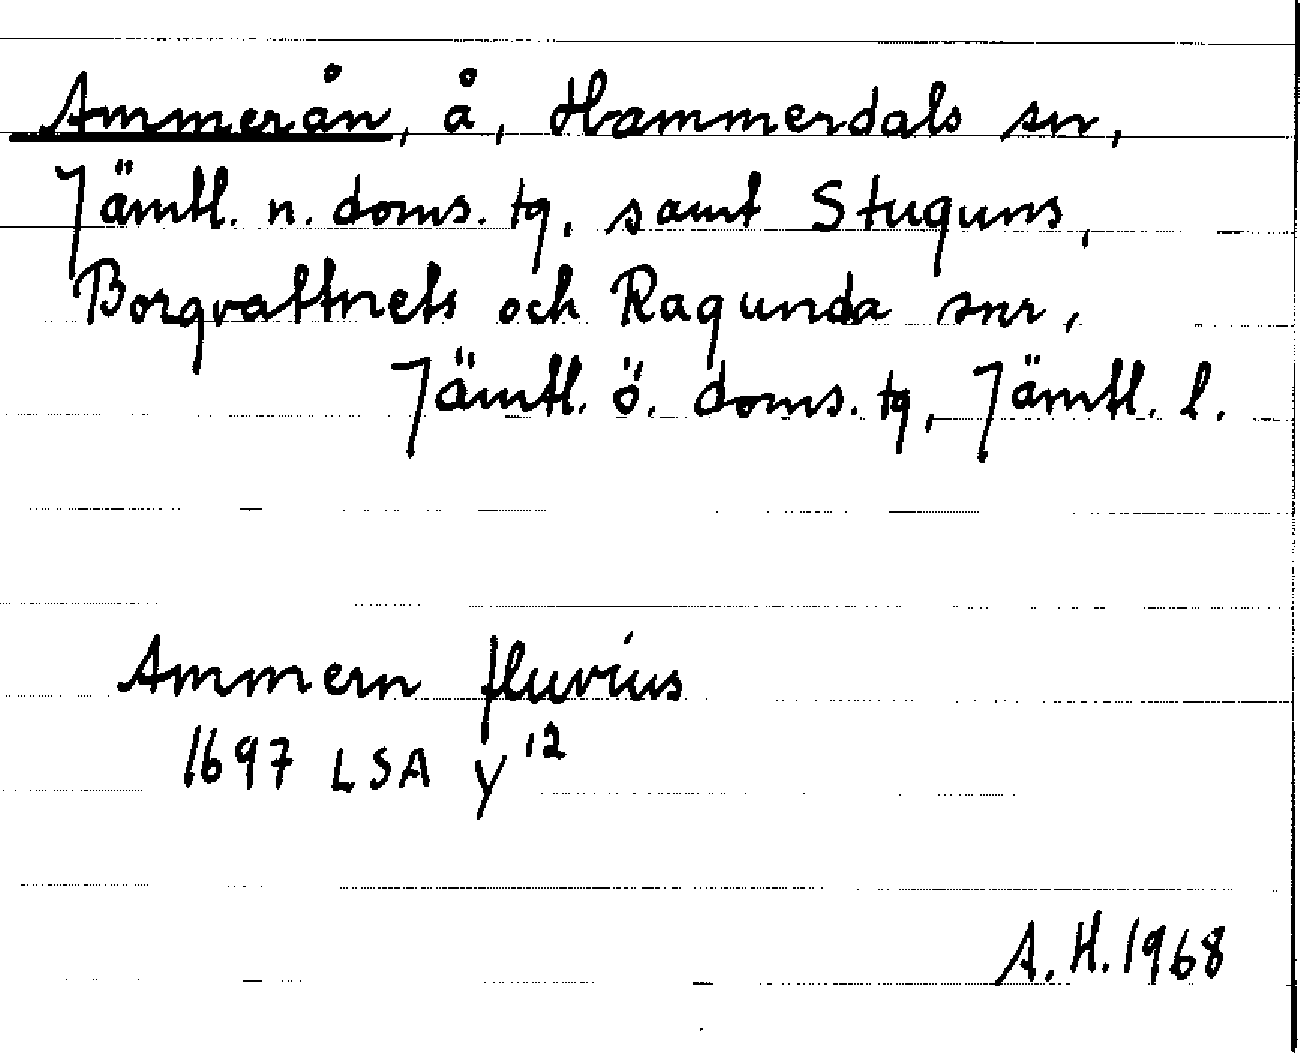 Ammerån, å, Hammerdals sn,
Jämtl. n. doms. tg, samt Stuguns,
Borgvattnets och Ragunda snr,
Jämtl. ö. doms. tg, Jämtl. l.
Ammern fluvius
1697 LSA Y 12
A.H. 1968